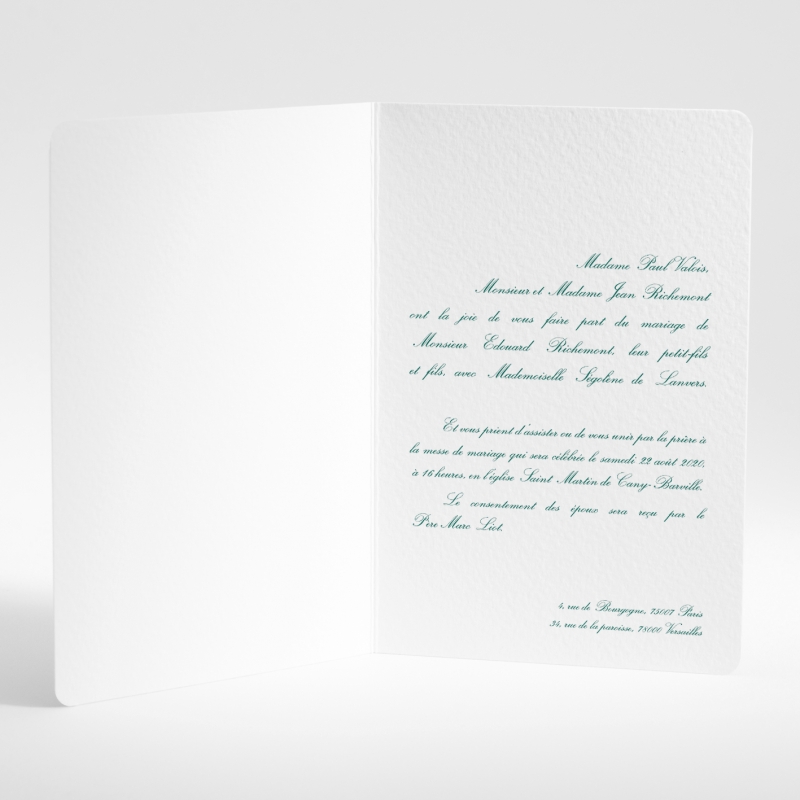 Madame Paul Valois,
Monsieur et Madame Jean Richemont
ont la joie de vous faire part du mariage de
Monsieur Edouard Richemont, leur petit-fils
et fils, avec Mademoiselle Ségolène de Lanvers.
Et vous prient d'assister ou de vous unir par la prière à
la messe de mariage qui sera célébrée le samedi 22 août 2020,
à 16 heures, en l'église Saint Martin de Cany-Barville.
Le consentement des époux sera reçu par le
Père Marc Liot.
4, rue de Bourgogne, 75007 Paris
34, rue de la paroisse, 78000 Versailles